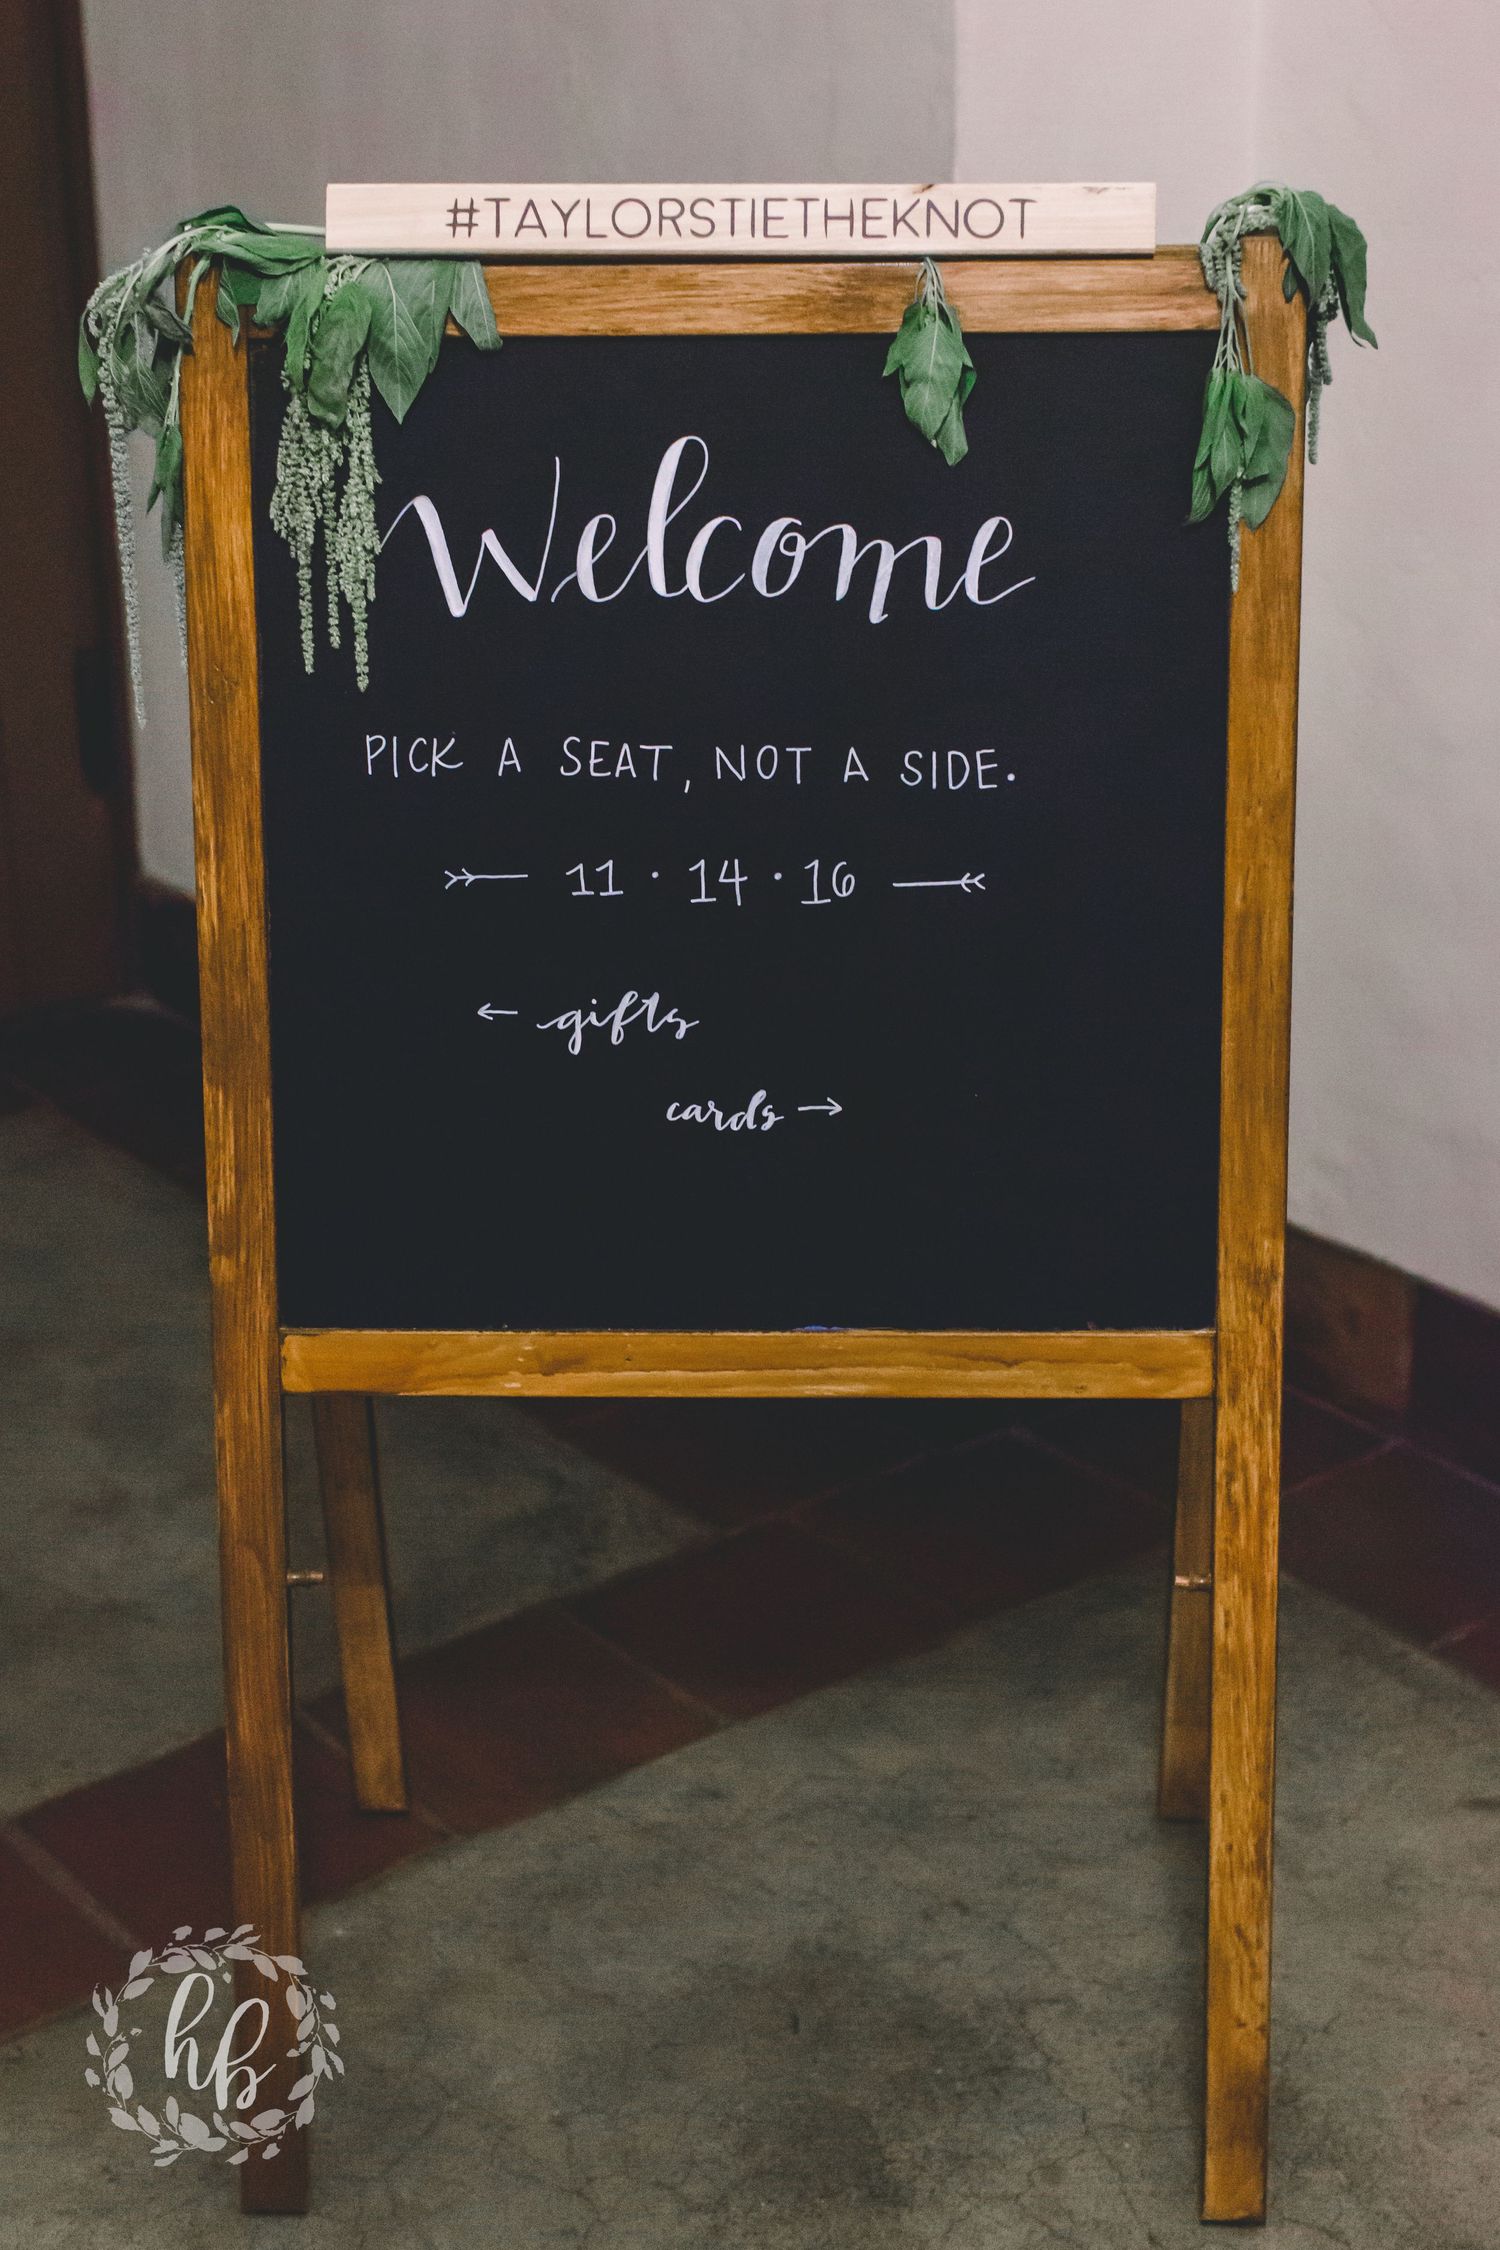 #TAYLORSTIETHEKNOT
Welcome
PICK A SEAT, NOT A SIDE.
11 · 14 · 16
← gifts
cards →
hb